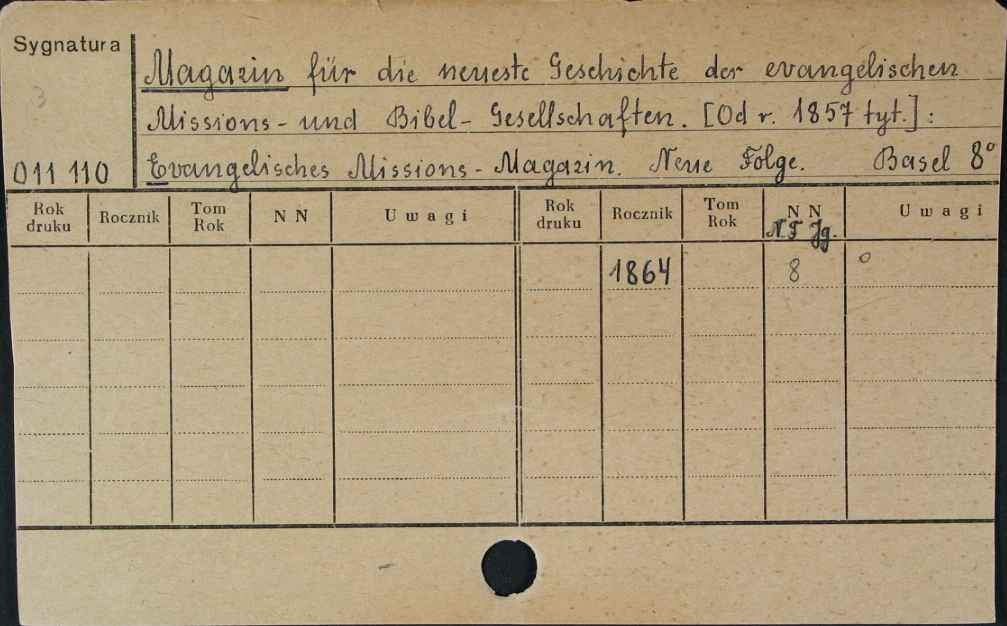 Sygnatura
Magazin für die neueste Geschichte der evangelischen
3
Missions- und Bibel-Gesellschaften. [Od r. 1857 tyt.]:
011 110 Evangelisches Missions-Magazin. Neue Folge. Basel 8°
Rok druku Rocznik Tom Rok N N Uwagi Rok druku Rocznik Tom Rok N N Uwagi
N F Jg.
1864 8 o